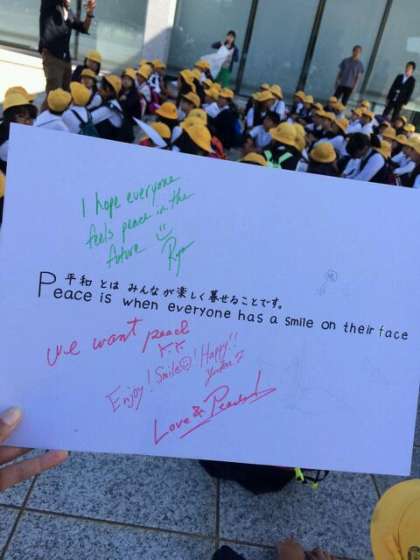 I hope everyone
feels peace in the
future
Ryo
平和とはみんなが楽しく暮せることです。
Peace is when everyone has a smile on their face
we want peace
K.K
Enjoy! Smile☺! Happy!!
Love & Peace!